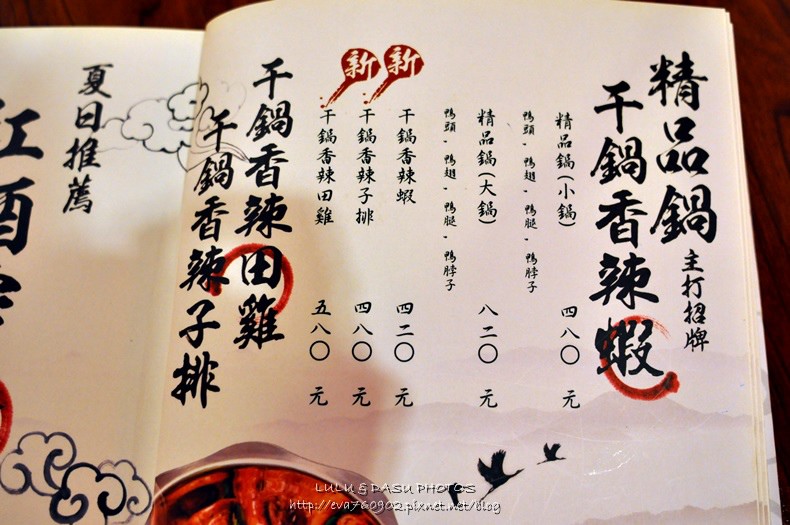 精品鍋
主打招牌
干鍋香辣蝦
精品鍋(小鍋) 四八〇 元
鴨頭、鴨翅、鴨腿、鴨脖子
精品鍋(大鍋) 八二〇 元
鴨頭、鴨翅、鴨腿、鴨脖子
新
干鍋香辣蝦 四二〇 元
新
干鍋香辣子排 四八〇 元
干鍋香辣田雞 五八〇 元
干鍋香辣田雞
干鍋香辣子排
夏日推薦
紅酒
LULU & DASU PHOTOS
http://eva760902.pixnet.net/blog